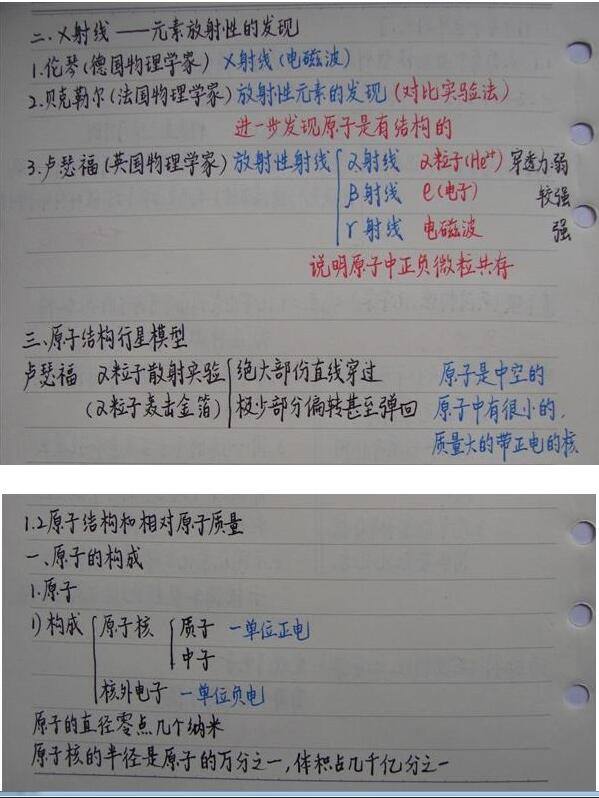 二.X射线——元素放射性的发现
1.伦琴(德国物理学家) X射线(电磁波)
2.贝克勒尔(法国物理学家)放射性元素的发现(对比实验法)
进一步发现原子是有结构的
3.卢瑟福(英国物理学家)放射性射线 α射线 α粒子(He²⁺) 穿透力:弱
β射线 e(电子) 较强
γ射线 电磁波 强
说明原子中正负微粒共存
三.原子结构行星模型
卢瑟福 α粒子散射实验 绝大部份直线穿过 原子是中空的
(α粒子轰击金箔) 极少部分偏转甚至弹回 原子中有很小的,
质量大的带正电的核
1.2原子结构和相对原子质量
一、原子的构成
1.原子
1)构成 原子核 质子 一单位正电
中子
核外电子 一单位负电
原子的直径零点几个纳米
原子核的半径是原子的万分之一,体积占几千亿分之一